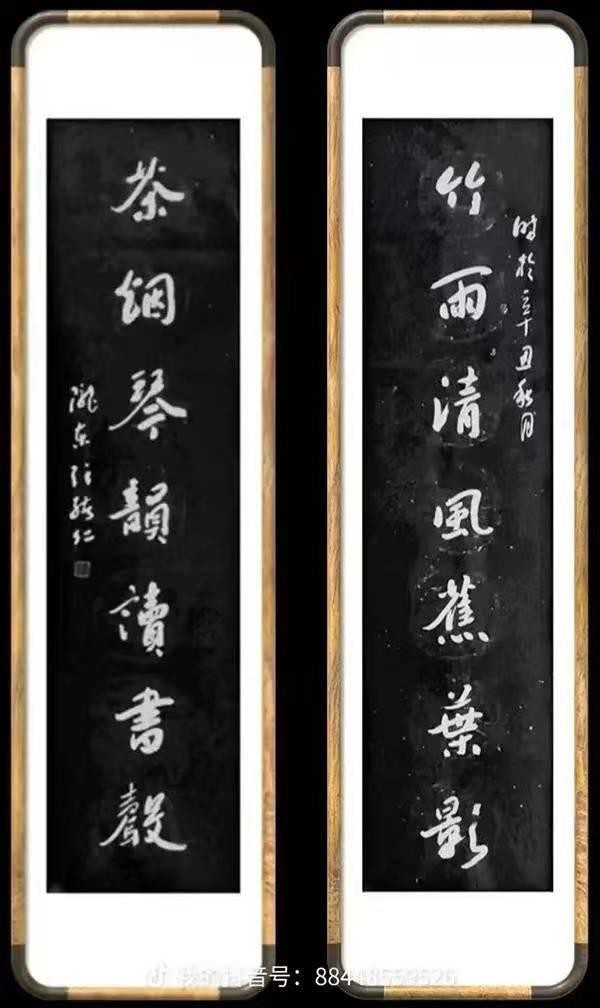 竹雨清風蕉葉影
時於辛丑秋月
茶烟琴韻讀書聲
隴東
仁
抖音号：88448559526